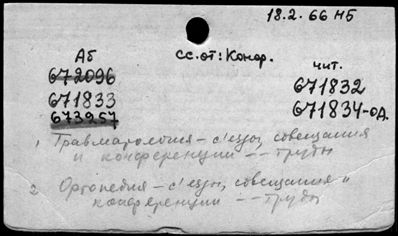 18.2.66 НБ
Аб сс.от: Конфр. чит.
672096 671832
671833 671834-од.
673257
1 Травматология – съезды, совещания
и конференции -- труды
2 Ортопедия – съезды, совещания и
конференции -- труды